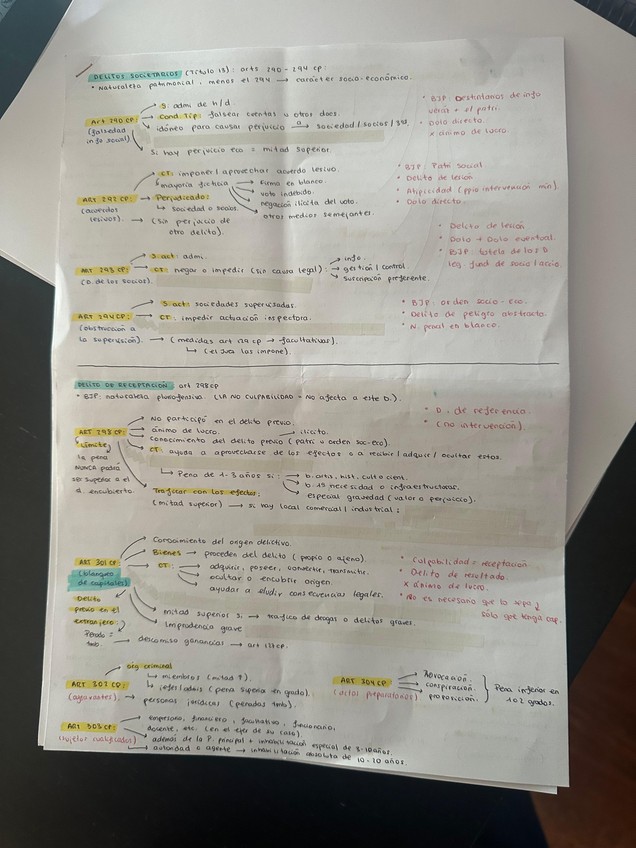 DELITOS SOCIETARIOS (Título 13): arts 290 - 294 cp:
• Naturaleza patrimonial, menos el 294 → carácter socio-económico.
Art 290 CP: (falsedad info social)
S: admi de h/d
Cond. Tip: falsear cuentas u otros docs.
idóneo para causar perjuicio a → sociedad / socios / 3ºs.
Si hay perjuicio eco = mitad superior.
• BJP: Destinatarios de info
veraz + el patri.
• Dolo directo.
x ánimo de lucro.
ART 292 CP: (acuerdos lesivos).
CT: imponer / aprovechar acuerdo lesivo.
mayoría ficticia
firma en blanco.
voto indebido.
negación ilícita del voto.
otros medios semejantes.
Perjudicado:
sociedad o socios.
(sin perjuicio de
otro delito).
• BJP: Patri social.
• Delito de lesión
• Atipicidad (ppio intervención min)
• Dolo directo.
ART 293 CP: (D. de los socios).
S. act: admi.
CT: negar o impedir (sin causa legal):
info.
gestión / control.
suscripción preferente.
• Delito de lesión
• Dolo + Dolo eventual.
• BJP: tutela de los D
leg fund de socio / accio.
ART 294 CP: (obstrucción a la supervisión).
S. act: sociedades supervisadas.
CT: impedir actuación inspectora.
(medidas art 129 cp → facultativas).
(el juez las impone).
• BJP: orden socio-eco.
• Delito de peligro abstracto
• N. penal en blanco.
DELITO DE RECEPTACIÓN art 298 cp
• BJP: naturaleza pluriofensiva. (LA NO CULPABILIDAD = No afecta a este D.).
• D. de referencia.
(no intervención).
ART 298 CP:
No participó en el delito previo.
ánimo de lucro. → ilícito.
conocimiento del delito previo (patri u orden soc-eco).
CT: ayuda a aprovecharse de los efectos o a recibir / adquirir / ocultar estos.
Límite:
la pena
NUNCA podrá
ser superior a el
d. encubierto.
Pena de 1-3 años si:
b. artis, hist, cult o cient.
b. 1º necesidad o infraestructuras.
especial gravedad (valor o perjuicio).
Traficar con los efectos:
(mitad superior) → si hay local comercial / industrial:
ART 301 CP
(blanqueo
de capitales)
Conocimiento del origen delictivo.
Bienes → proceden del delito (propio o ajeno).
CT:
adquirir, poseer, convertir, transmitir.
ocultar o encubrir origen.
ayudar a eludir consecuencias legales.
• Culpabilidad = receptación
• Delito de resultado.
x ánimo de lucro.
• No es necesario que lo sepa
solo que tenga cap.
Delito
previo en el
extranjero:
Penado =
tmb.
mitad superior si → trafico de drogas o delitos graves.
Imprudencia grave
decomiso ganancias → art 127 CP.
ART 302 CP:
(agravantes)
org criminal
miembros (mitad ↑).
jefes / admis (pena superior en grado).
personas jurídicas (penadas tmb).
ART 304 CP:
(actos preparatorios)
Provocación.
conspiración.
proposición.
Pena inferior en
1 o 2 grados.
ART 303 CP:
(sujetos cualificados)
empresario, financiero, facultativo, funcionario,
docente, etc. (en el ejer de su cargo).
además de la P. principal + inhabilitación especial de 3-10 años.
autoridad o agente → inhabilitación absoluta de 10-20 años.